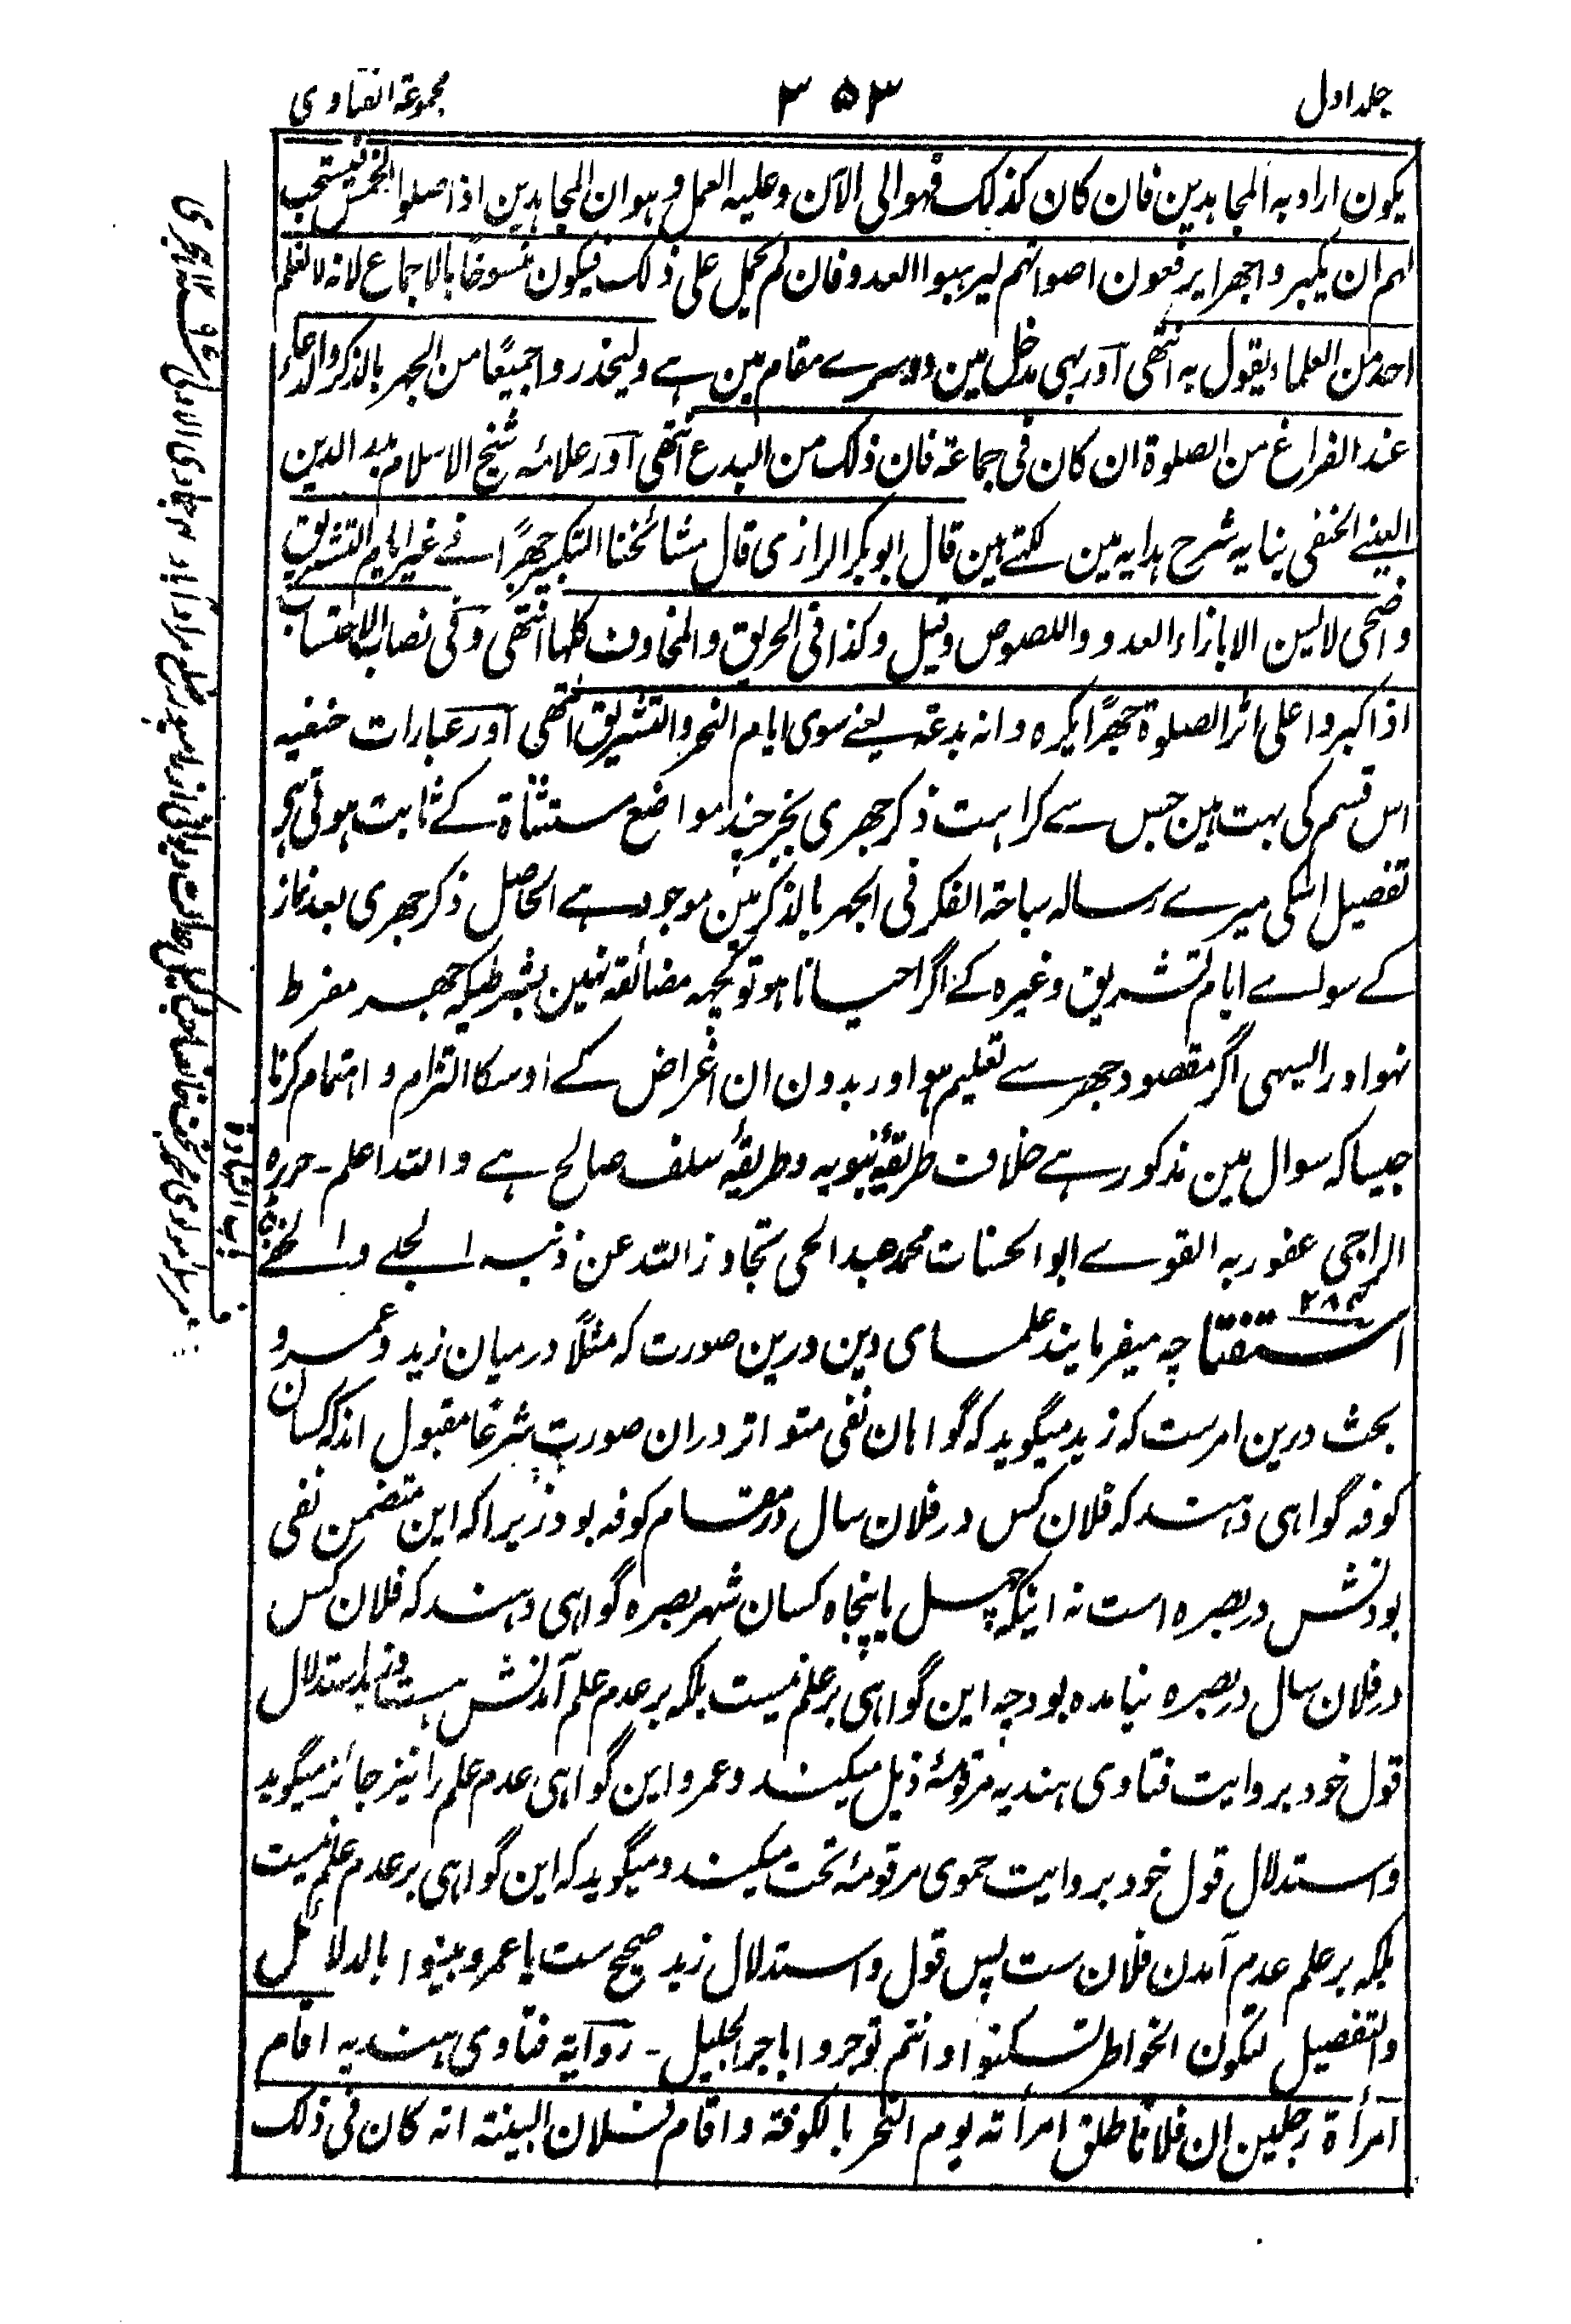 جلد اول
۳۵۳
مجموعۃ الفتاوی
یکون اراد بہ المجاہدین فان کان کذلک فہو الی الآن وعلیہ العمل وہو ان المجاہدین اذا صلوا الخمس فیستحب
لہم ان یکبروا جہرا یرفعون اصواتہم لیرہبوا العدو فان لم یحمل علی ذلک فیکون منسوخًا بالاجماع لانہ لا نعلم
احد من العلماء یقول بہ انتھی اور بہی مدخل مین دوسرے مقام مین ہے ولیحذروا جمیعًا من الجہر بالذکر والدعاء
عند الفراغ من الصلوۃ ان کان فی جماعۃ فان ذلک من البدع انتھی اور علامہ شیخ الاسلام بدر الدین
العینے الحنفی بنایہ شرح ہدایہ مین لکتے ہین قال ابوبکر الرازی قال مشائخنا التکبیر جہرًا فے غیر ایام التشریق
واضحی لا یسن الا بازاء العدو واللصوص وقیل وکذا فی الحریق والمخاوف کلہا انتھی وفی نصاب الاحتساب
اذا کبروا علی اثر الصلوۃ جہرًا یکرہ وانہ بدعۃ یعنے سوی ایام النحر والتشریق انتھی اور عبارات حنفیہ
اس قسم کی بہت ہین جس سے کراہت ذکر جہری بجز چند مواضع مستثناۃ کے ثابت ہوتی ہی
تفصیل اسکی میرے رسالہ سباحۃ الفکر فی الجہر بالذکر مین موجود ہے الحاصل ذکر جہری بعد نماز
کے سواے ایام تشریق وغیرہ کے اگر احیانا ہو تو کچہہ مضائقہ نہین بشرطیکہ جہر مفرط
نہو اور الیسہی اگر مقصود جہر سے تعلیم ہو اور بدون ان اغراض کے اوسکا التزام و اہتمام کرنا
جیسا کہ سوال مین مذکور ہے خلاف طریقۂ نبویہ و طریقۂ سلف صالح ہے واللہ اعلم۔ حررہ
الراجی عفو ربہ القوے ابو الحسنات محمد عبد الحی تجاوز اللہ عن ذنبہ الجلے والخفے
۲۸۴
استفتا چہ میفرمایند علمای دین درین صورت کہ مثلًا درمیان زید و عمرو
بحث درین امرست کہ زید میگوید کہ گواہان نفی متواتر دران صورت شرعًا مقبول اند کہ کسان
کوفہ گواہی دہند کہ فلان کس در فلان سال در مقام کوفہ بود زیرا کہ این متضمن نفی
بودنش در بصرہ است نہ اینکہ چہل یا پنجاہ کسان شہر بصرہ گواہی دہند کہ فلان کس
در فلان سال در بصرہ نیامدہ بود چہ این گواہی بر علم نیست بلکہ بر عدم علم آمدنش ہست و زید استدلال
قول خود بروایت فتاوی ہندیہ مرقومۂ ذیل میکند و عمرو این گواہی عدم علم را نیز جائز میگوید
و استدلال قول خود بروایت حموی مرقومۂ تحت میکند و میگوید کہ این گواہی بر عدم علم نیست
بلکہ بر علم عدم آمدن فلان ست پس قول و استدلال زید صحیح ست یا عمرو بینوا بالدلائل
والتفصیل لتکون الخواطر لتسکنوا وانتم توجروا باجر الجلیل۔ روایۃ فتاوی ہندیہ اقام
امرأۃ رجلین ان فلانا طلق امرأتہ یوم النحر بالکوفۃ واقام فلان البینۃ انہ کان فی ذلک
باب الشہادۃ